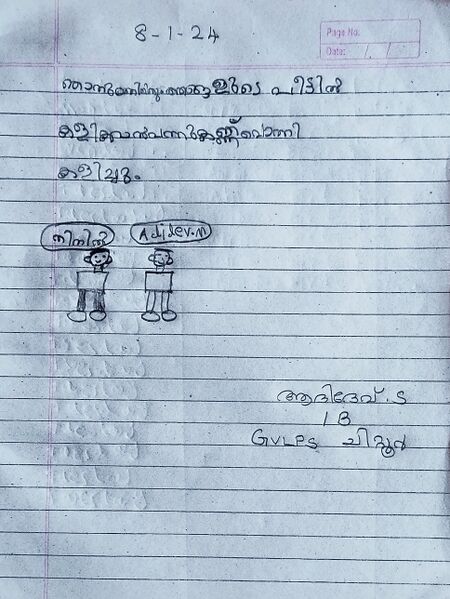 8-1-24
Page No.
Date: / /
ഞാനും നിനിലും ഞങ്ങളുടെ വീട്ടിൽ
കളിക്കാൻ വന്നു കണ്ണ് പൊത്തി
കളിച്ചു.
നിനിൽ Adidev.M
ആദിദേവ്.S
1 B
GVLPS ചിറ്റൂർ